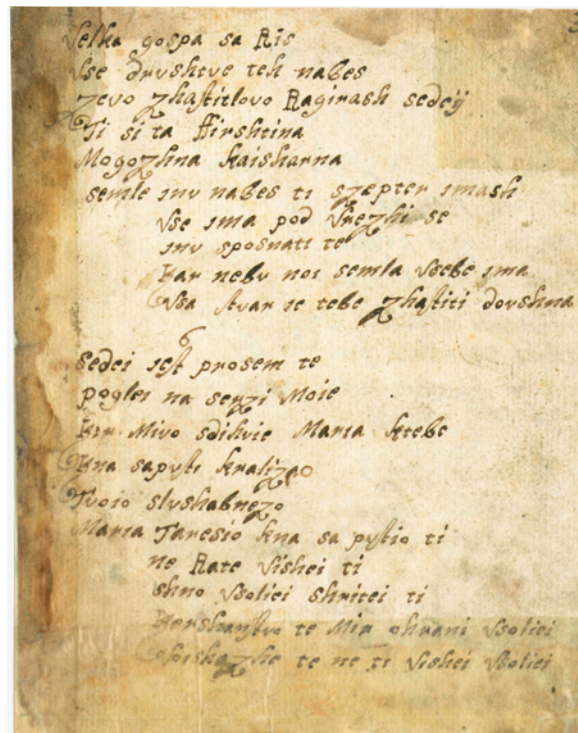 Velka gospa sa Ris
Vse drushtve teh nabes
Zevo zhaſtitlovo Ragirash sedeij
Ti si ta ffirshtina
Mogozhna kaisharna
semle inu nabes ti szepter imash
Vse ima pod Vrezhi se
inu sposnati te
Kar nebu noi semla Vsebe ima
Vsa stvar ie tebe zhaſtiti dovshna
6
Sedei ieſt prosem te
poglei na serzi Moie
Ker Mivo sdihvie Maria ktebe
Kna sapuſti kralizao
Tvoio slushabnezo
Maria Taresio kna sa puſtio ti
ne Rate Vishei ti
shno Vsoliei shritei ti
te Mir ohrani Vsoliei
te ne ti Vishei Vsoliei